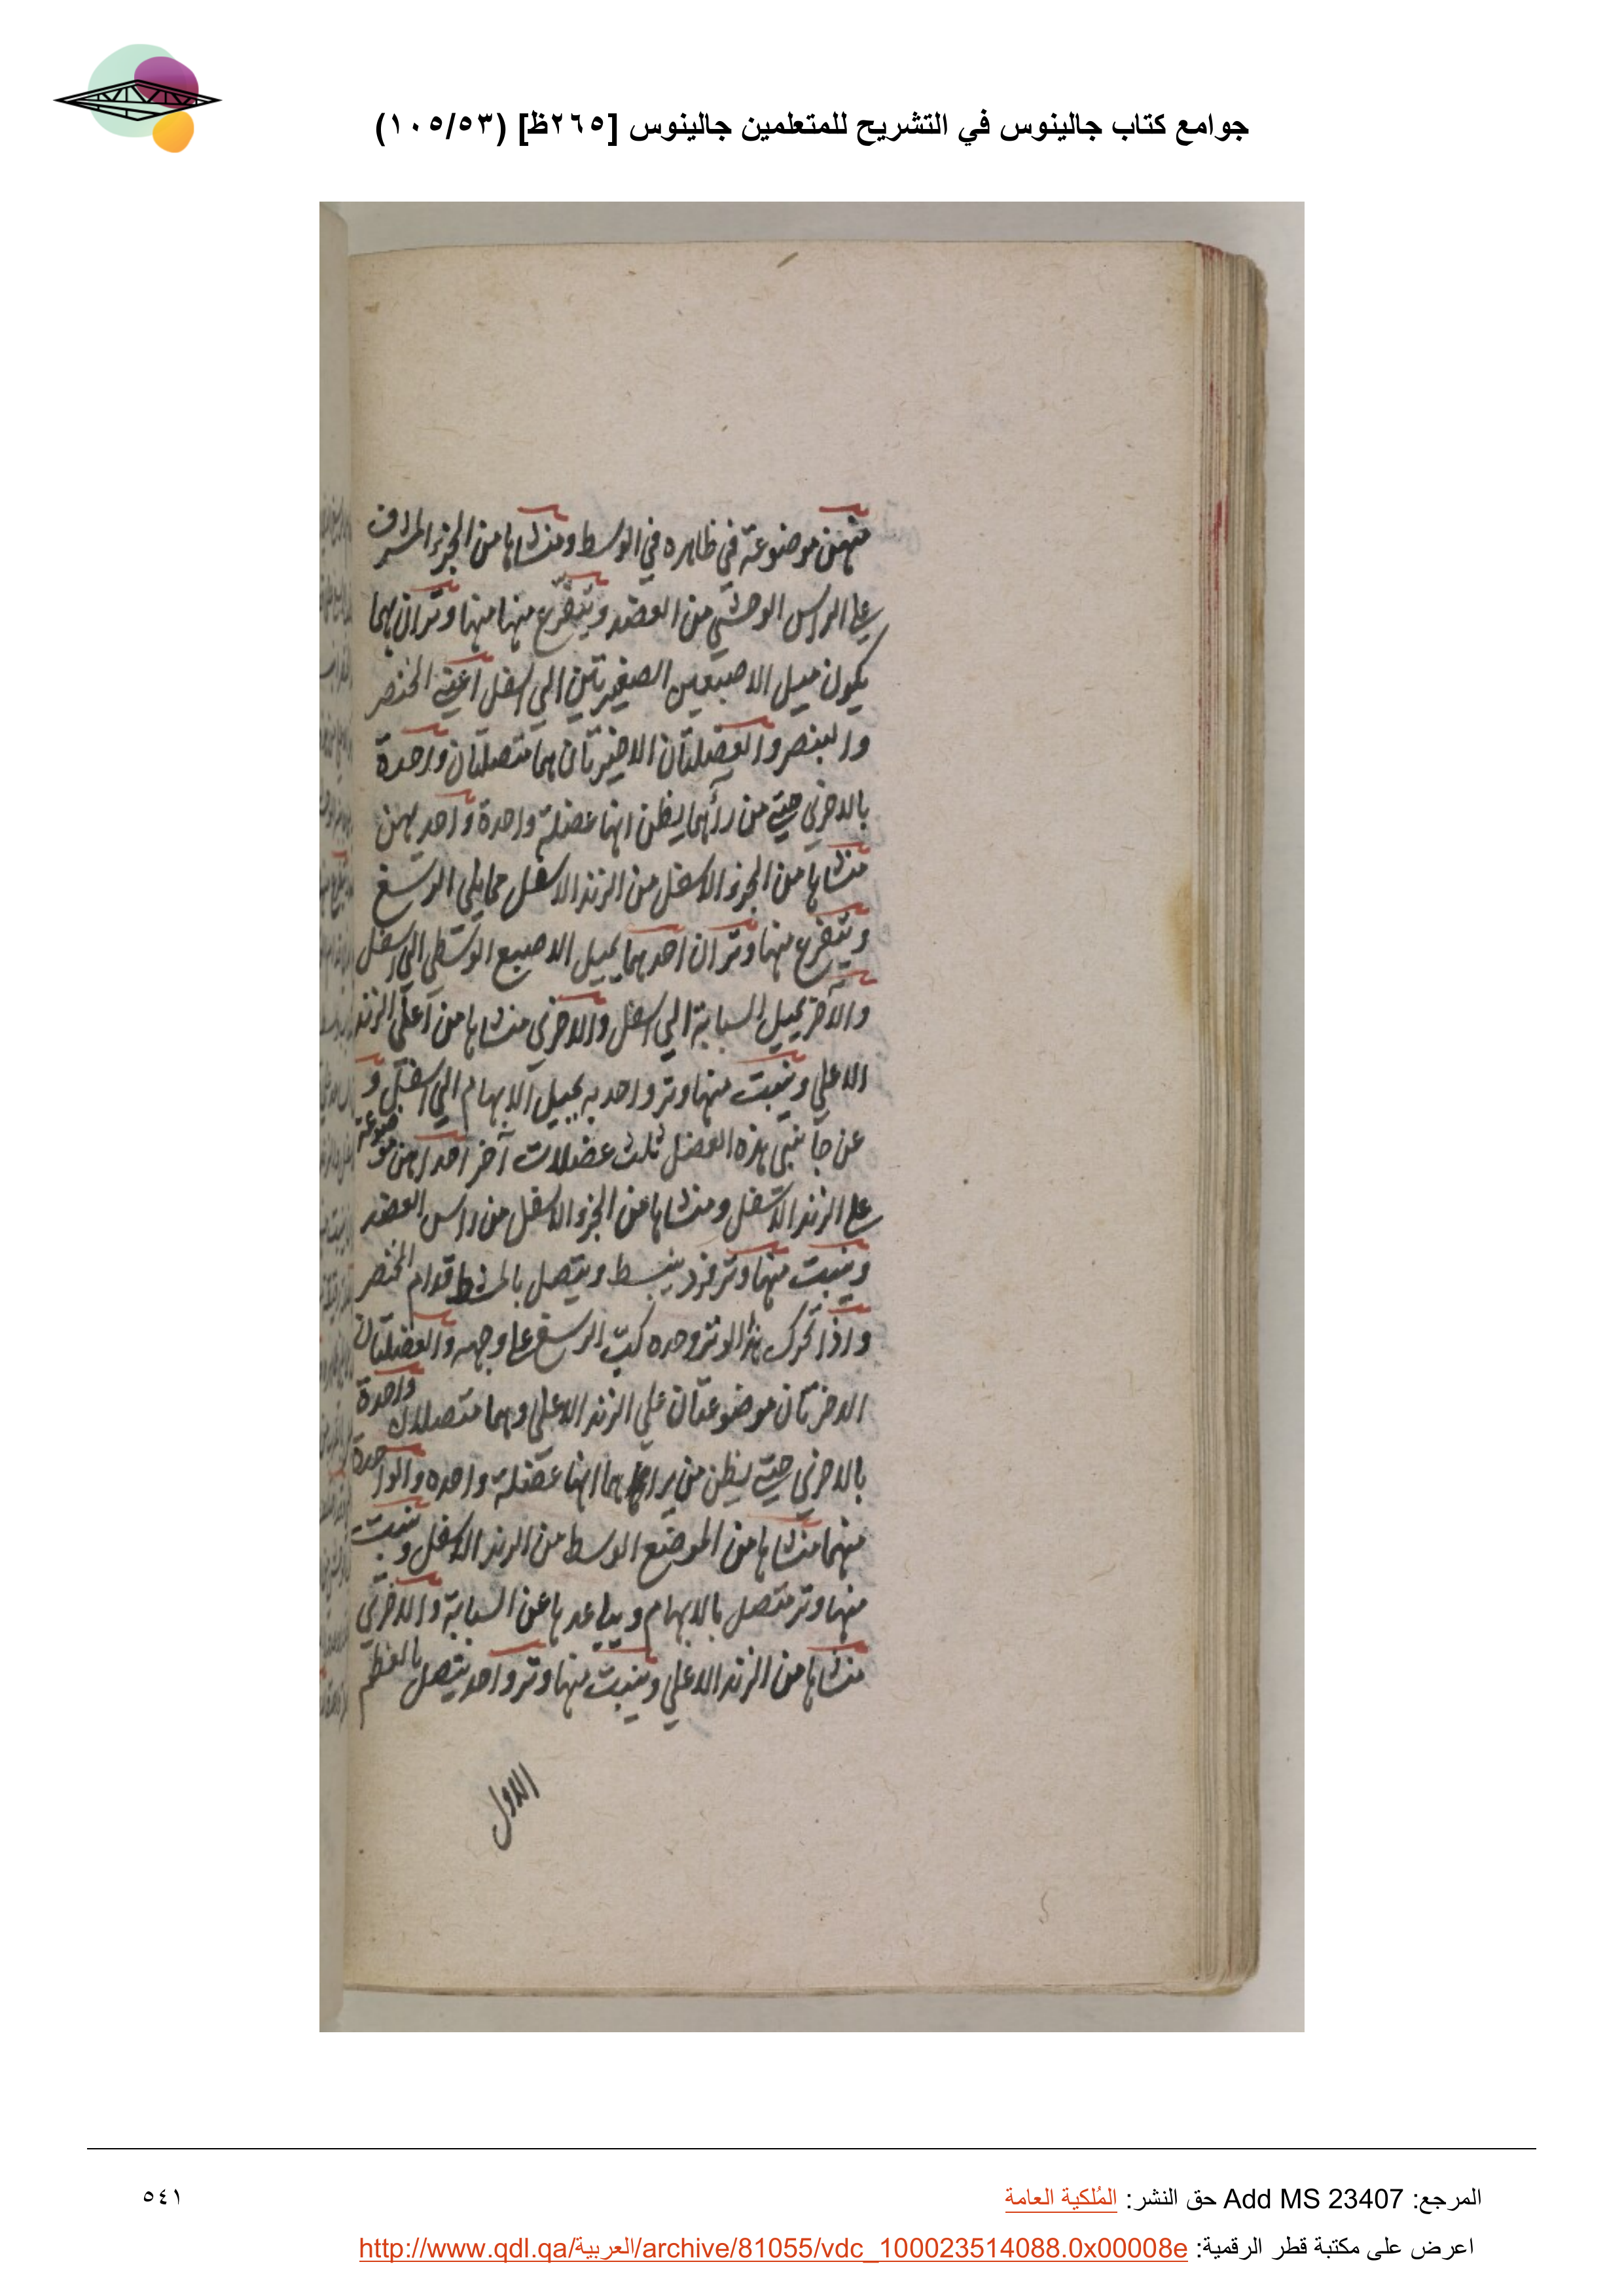 جوامع كتاب جالينوس في التشريح للمتعلمين جالينوس [٢٦٥ظ] (١٠٥/٥٣)
منهن موضوعة في ظاهره في الوسط ومنشاها من الجزء المشرف
على الراس الوحشي من العضد ويتفرع منها منها وتران بهما
يكون ميل الاصبعين الصغيرتين الي اسفل اعني الخنصر
والبنصر والعضلتان الاخيرتان هما متصلتان واحدة
بالاخري حتي من رأهما يظن انها عضلة واحدة واحديهن
منشاها من الجزء الاسفل من الزند الاسفل مما يلي الرسغ
ويتفرع منها وتران احدهما يميل الاصبع الوسطي الي اسفل
والآخر يميل السبابة الي اسفل والاخري منشاها من اعلي الزند
الاعلي وينبت منها وتر واحد به يميل الابهام الي اسفل و
عن جانبي هذه العضل ثلث عضلات آخر احداهن موضوعة
على الزند الاسفل ومنشاها من الجزء الاسفل من راس العضد
وينبت منها وتر فرد ينبسط ويتصل بالمشط قدام الخنصر
واذا تحرك هذا الوتر وحده كب الرسغ على وجهه والعضلتان
الاخرتان موضوعتان علي الزند الاعلي وهما متصلتان واحدة
بالاخري حتي يظن من يراهما انها عضلة واحده والواحدة
منهما منشاها من الموضع الوسط من الزند الاسفل وينبت
منها وتر متصل بالابهام ويباعدها عن السبابة والاخري
منشاها من الزند الاعلي وينبت منها وتر واحد يتصل بالعظم
الاول
المرجع: Add MS 23407 حق النشر: المُلكية العامة
٥٤١
اعرض على مكتبة قطر الرقمية: http://www.qdl.qa/العربية/archive/81055/vdc_100023514088.0x00008e